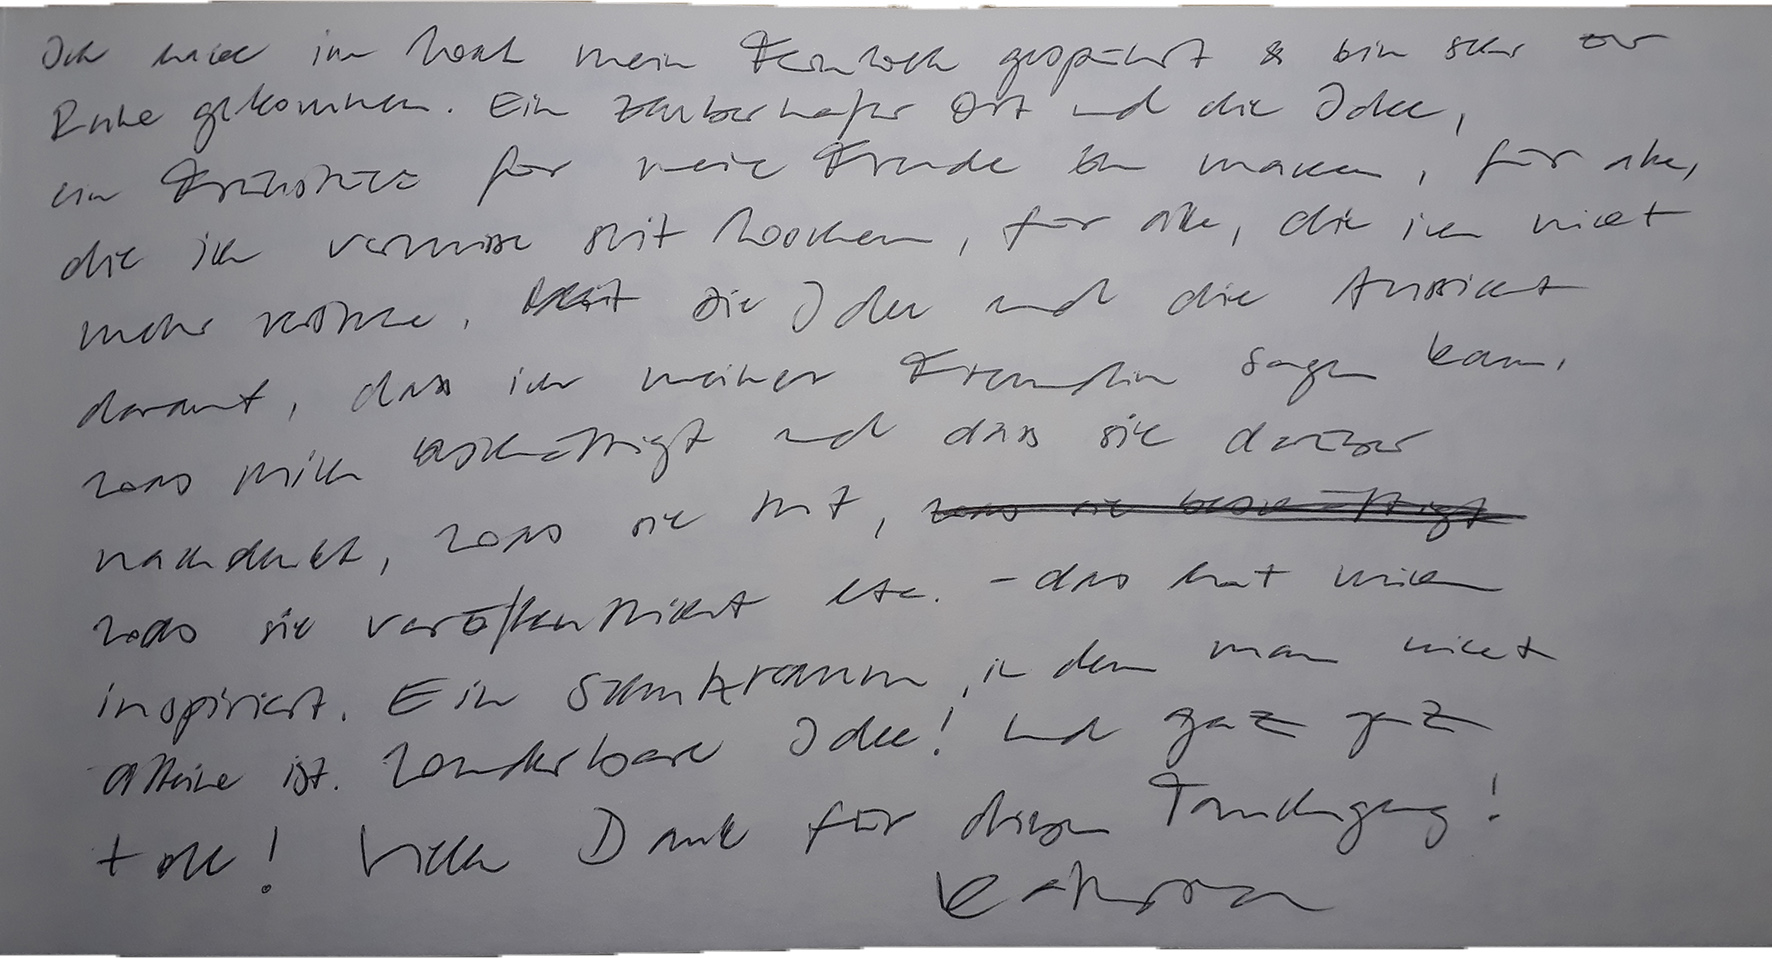 Ich habe im mein gespürt & bin sehr zur
Ruhe gekommen. Ein zauberhafter Ort und die Idee,
ein Frühstück für meine Freunde zu machen, für alle,
die ich vermisse seit Wochen, für alle, die ich nicht
mehr Die Idee und die Aussicht
darauf, dass ich meiner Freundin sagen kann,
was mich beschäftigt und dass sie darüber
nachdenkt, was sie tut, was sie beschäftigt
was sie veröffentlicht etc. - das hat mich
inspiriert. Ein , in dem man nicht
alleine ist. Wunderbare Idee! Und ganz ganz
toll! Vielen Dank für diesen Tauchgang!